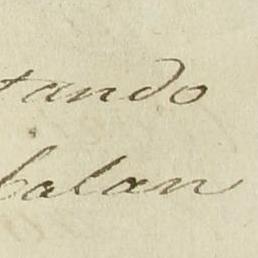 tando
balan